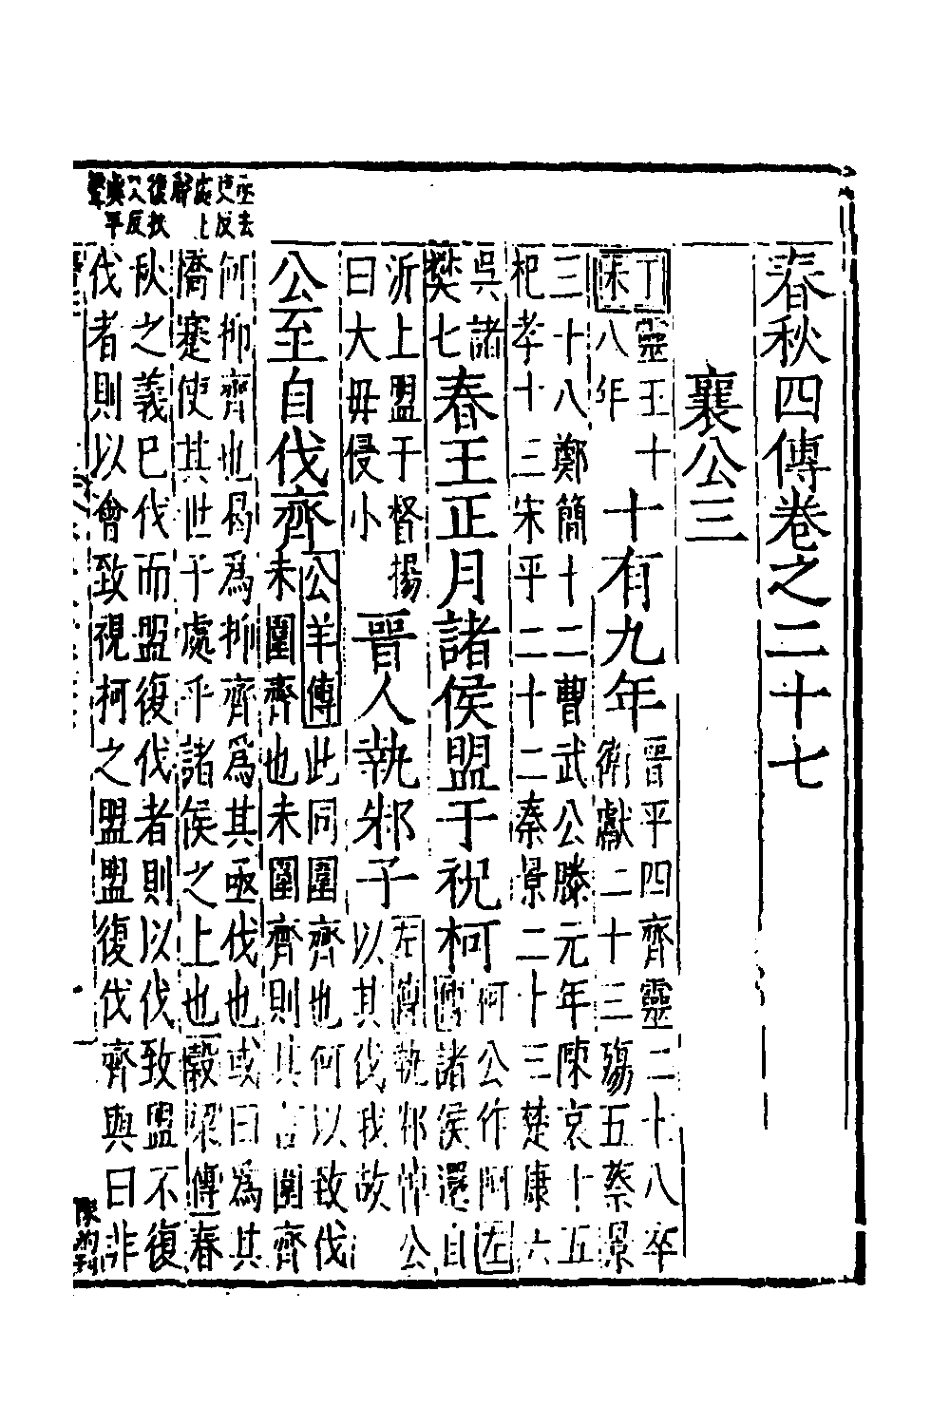 春秋四傳卷之二十七
襄公三
丁未
靈王十
八年
十有九年
晉平四齊靈二十八卒
衛獻二十三殤五蔡景
三十八鄭簡十二曹武公滕元年陳哀十五
杞孝十三宋平二十二秦景二十三楚康六
吳諸
樊七
春王正月諸侯盟于祝柯
柯公作阿左
傳諸侯還自
沂上盟于督揚
曰大毋侵小
晉人執邾子
左傳執邾悼公
以其伐我故
公至自伐齊
公羊傳此同圍齊也何以致伐
未圍齊也未圍齊則其言圍齊
何抑齊也曷爲抑齊爲其亟伐也或曰為其
驕蹇使其世子處乎諸侯之上也穀梁傳春
秋之義已伐而盟復伐者則以伐致盟不復
伐者則以會致視柯之盟盟復伐齊與曰非
亟去
處上
聲
復扶
又反
與平
聲